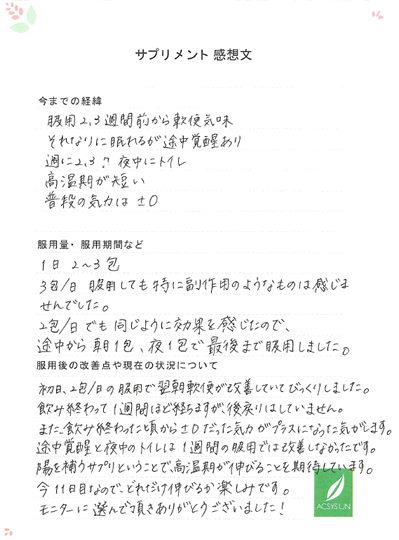 サプリメント 感想文
今までの経緯
服用2,3週間前から軟便気味
それなりに眠れるが途中覚醒あり
週に2,3? 夜中にトイレ
高温期が短い
普段の気力は±0
服用量・服用期間など
1日 2〜3包
3包/日 服用しても特に副作用のようなものは感じま
せんでした。
2包/日でも同じように効果を感じたので、
途中から朝1包、夜1包で最後まで服用しました。
服用後の改善点や現在の状況について
初日、2包/日の服用で翌朝軟便が改善していてびっくりしました。
飲み終わって1週間ほど経ちますが、後戻りはしていません。
また、飲み終わった頃から±0だった気力がプラスになった気がします。
途中覚醒と夜中のトイレは1週間の服用では改善しなかったです。
陽を補うサプリということで、高温期が伸びることを期待しています。
今11日目なので、どれだけ伸びるか楽しみです。
モニターに選んで頂きありがとうございました!
ACSYSUN